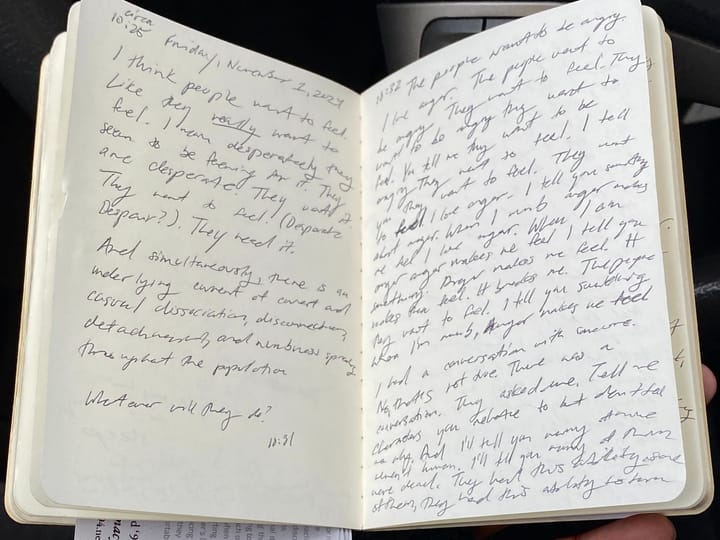 circa
10:25
Friday, November 1, 2024
I think people want to feel.
Like they really want to
feel. I mean desperately they
seem to be for it. They
are desperate. They want it.
They want to feel. (Desperate
Despair?). They need it.
And simultaneously, there is an
underlying current of covert and
casual dissociation, disconnection,
detachment, and numbness spread
throughout the population
Whatever will they do?
10:31
10:32 The people want to be angry.
I love anger. The people want to
be angry. They want to feel. They
want to be angry they want to
feel. You tell me they want to be
angry They want to feel. I tell
you they want to feel. They want
to feel I love anger. I tell you something
about anger. When I numb anger makes
me feel I love anger. When I am
anger makes me feel I tell you
something. Anger makes me feel It
makes them feel. It breaks me. The people
they want to feel. I tell you something
when I'm numb, Anger makes me feel
I had a conversation with someone.
No, that's not true. There was a
conversation. They asked me, Tell me
characters you relate to but don't tell
me why. And I'll tell you many
weren't human. I'll tell you many of them
were dead. They had this ability some
of them, they had this ability to turn